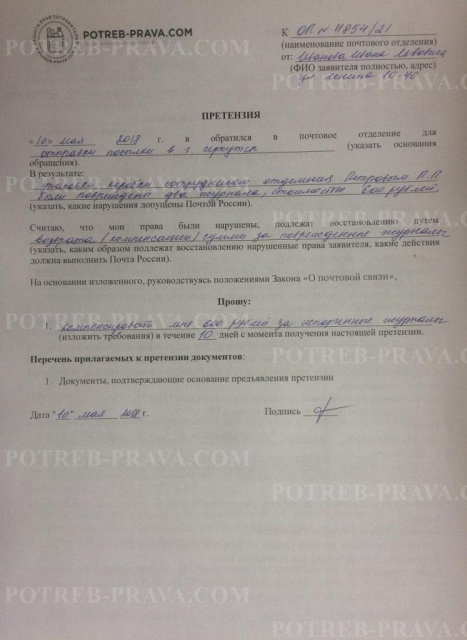 POTREB-PRAVA.COM
К ОП № 4854/21
(наименование почтового отделения)
от: Иванова Ивана Ивановича
(ФИО заявителя полностью, адрес)
ул. Ленина 16-46
ПРЕТЕНЗИЯ
«10» мая 2018 г. я обратился в почтовое отделение для
отправки посылки в г. Иркутск (указать основания
обращения).
В результате:
коробки сотрудником отделения Петровым П.П.
были повреждены два журнала, стоимостью 600 рублей.
(указать, какие нарушения допущены Почтой России).
Считаю, что мои права были нарушены, подлежат восстановлению путем
возврата (компенсации) суммы за поврежденные журналы
(указать, каким образом подлежат восстановлению нарушенные права заявителя, какие действия
должна выполнить Почта России).
На основании изложенного, руководствуясь положениями Закона «О почтовой связи»,
Прошу:
1. компенсировать мне 600 рублей за испорченные журналы
(изложить требования) в течение 10 дней с момента получения настоящей претензии.
Перечень прилагаемых к претензии документов:
1. Документы, подтверждающие основание предъявления претензии
Дата "10" мая 2018 г. Подпись
POTREB-PRAVA.COM
POTREB-PRAVA.COM
POTREB-PRAVA.COM
POTREB-PRAVA.COM
POTREB-PRAVA.COM
POTREB-PRAVA.COM
POTREB-PRAVA.COM
POTREB-PRAVA.COM
POTREB-PRAVA.COM
POTREB-PRAVA.COM